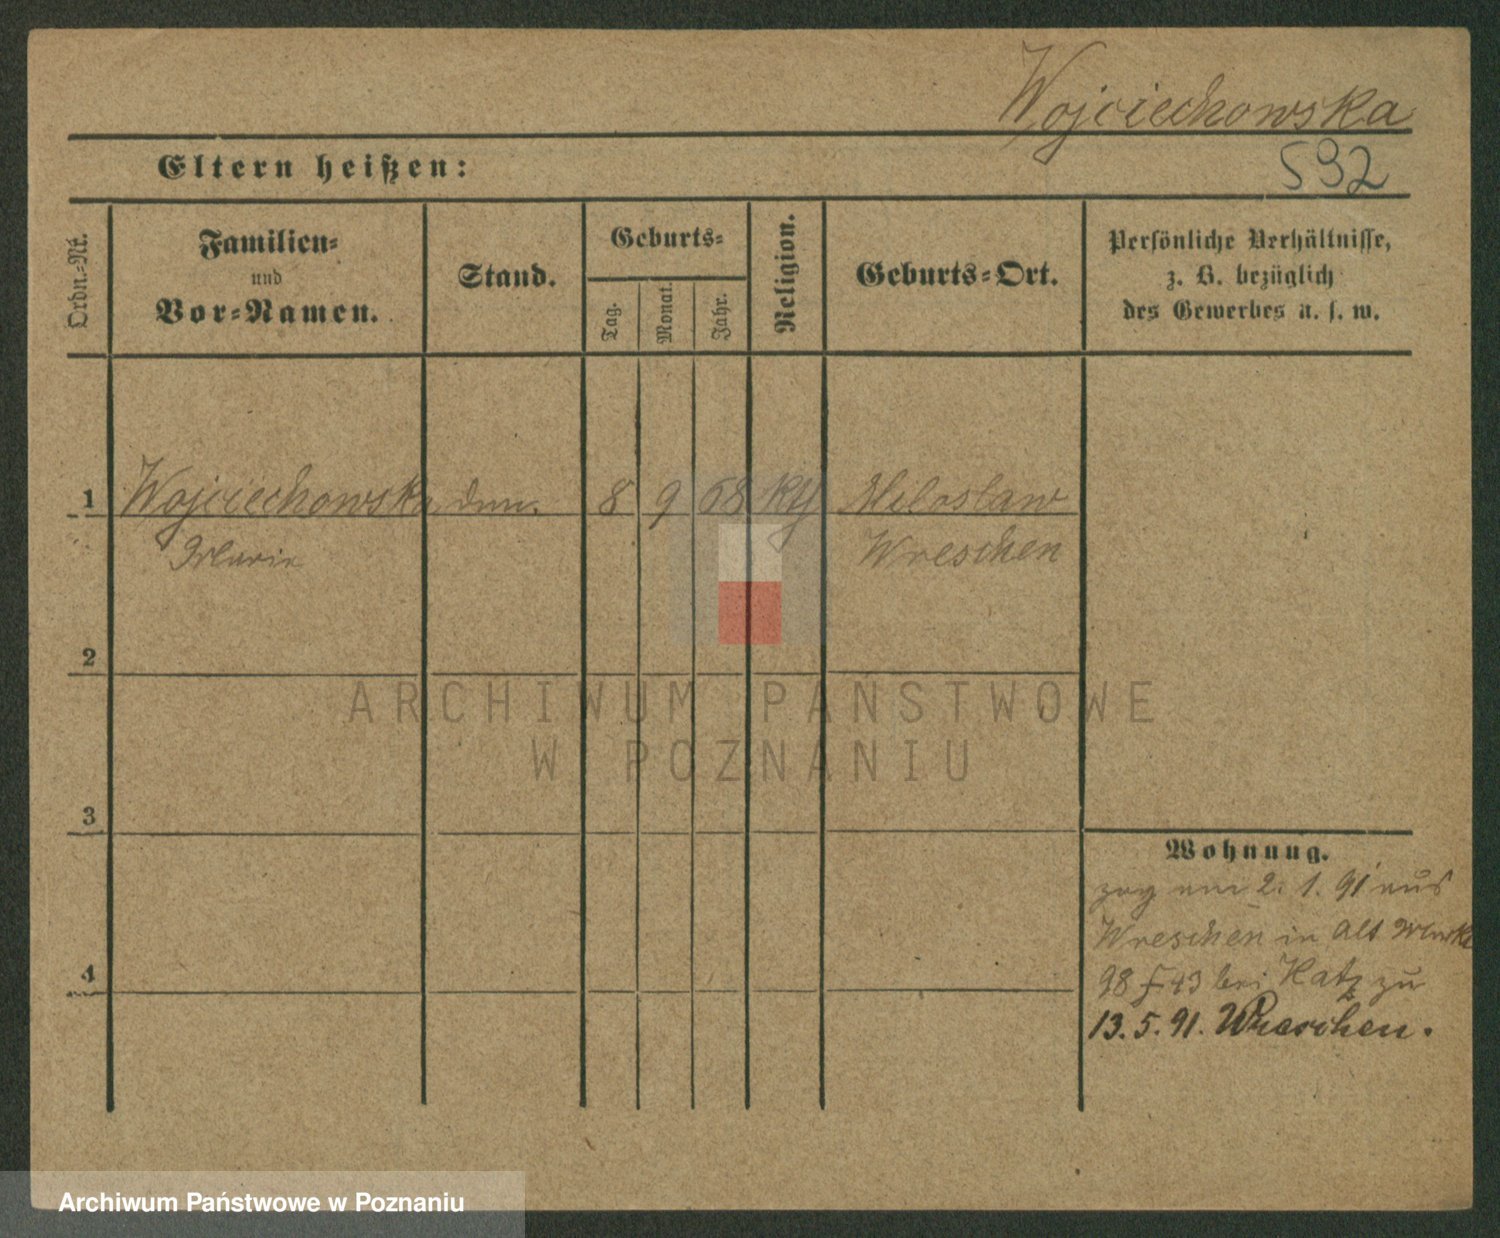 Wojciechowska
Eltern heißen:
592
Ordn.-Nr.
Familien-
und
Vor-Namen.
Stand.
Geburts-
Tag.
Monat.
Jahr.
Religion.
Geburts-Ort.
Persönliche Verhältnisse,
z. B. bezüglich
des Gewerbes u. s. w.
1 Wojciechowska 8 9 68 Miloslaw
Marie Wreschen
2
3
4
Wohnung.
zog am 2. 1. 91 aus
Wreschen in Alt
98 bei Katz zu
13. 5. 91. Wreschen.
ARCHIWUM PAŃSTWOWE
W POZNANIU
Archiwum Państwowe w Poznaniu